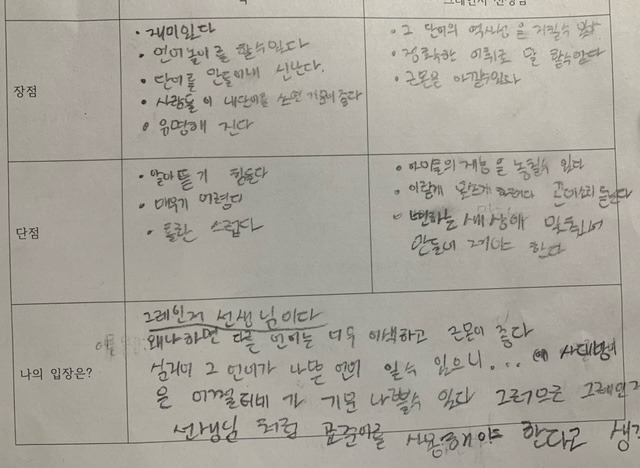 그레인저 선생님
장점
• 재미있다
• 언어놀이를 할수있다
• 단어를 만들어내 신난다.
• 사람들이 내단어를 쓰면 기분이 좋다
• 유명해 진다
• 그 단어의 역사성을 지킬수
• 정확한 어휘로 말 할수있다
• 근본을 아낄수있다
단점
• 알아듣기 힘들다
• 배우기 어렵다
• 혼란 스럽다
• 아이들의 재능을 놓칠수 있다
• 이렇게
• 변하는 세상에 맞춰
만들어 한다
나의 입장은?
그레인저 선생님이다
왜냐하면 다른 언어는 너무 어색하고 근본이 좋다
심지어 그 언어가 나쁜 언어 일수 있으니...
은 가 기분 나쁠수 있다 그러므로 그레인저
선생님 처럼 표준어를 사용해야 한다고 생각